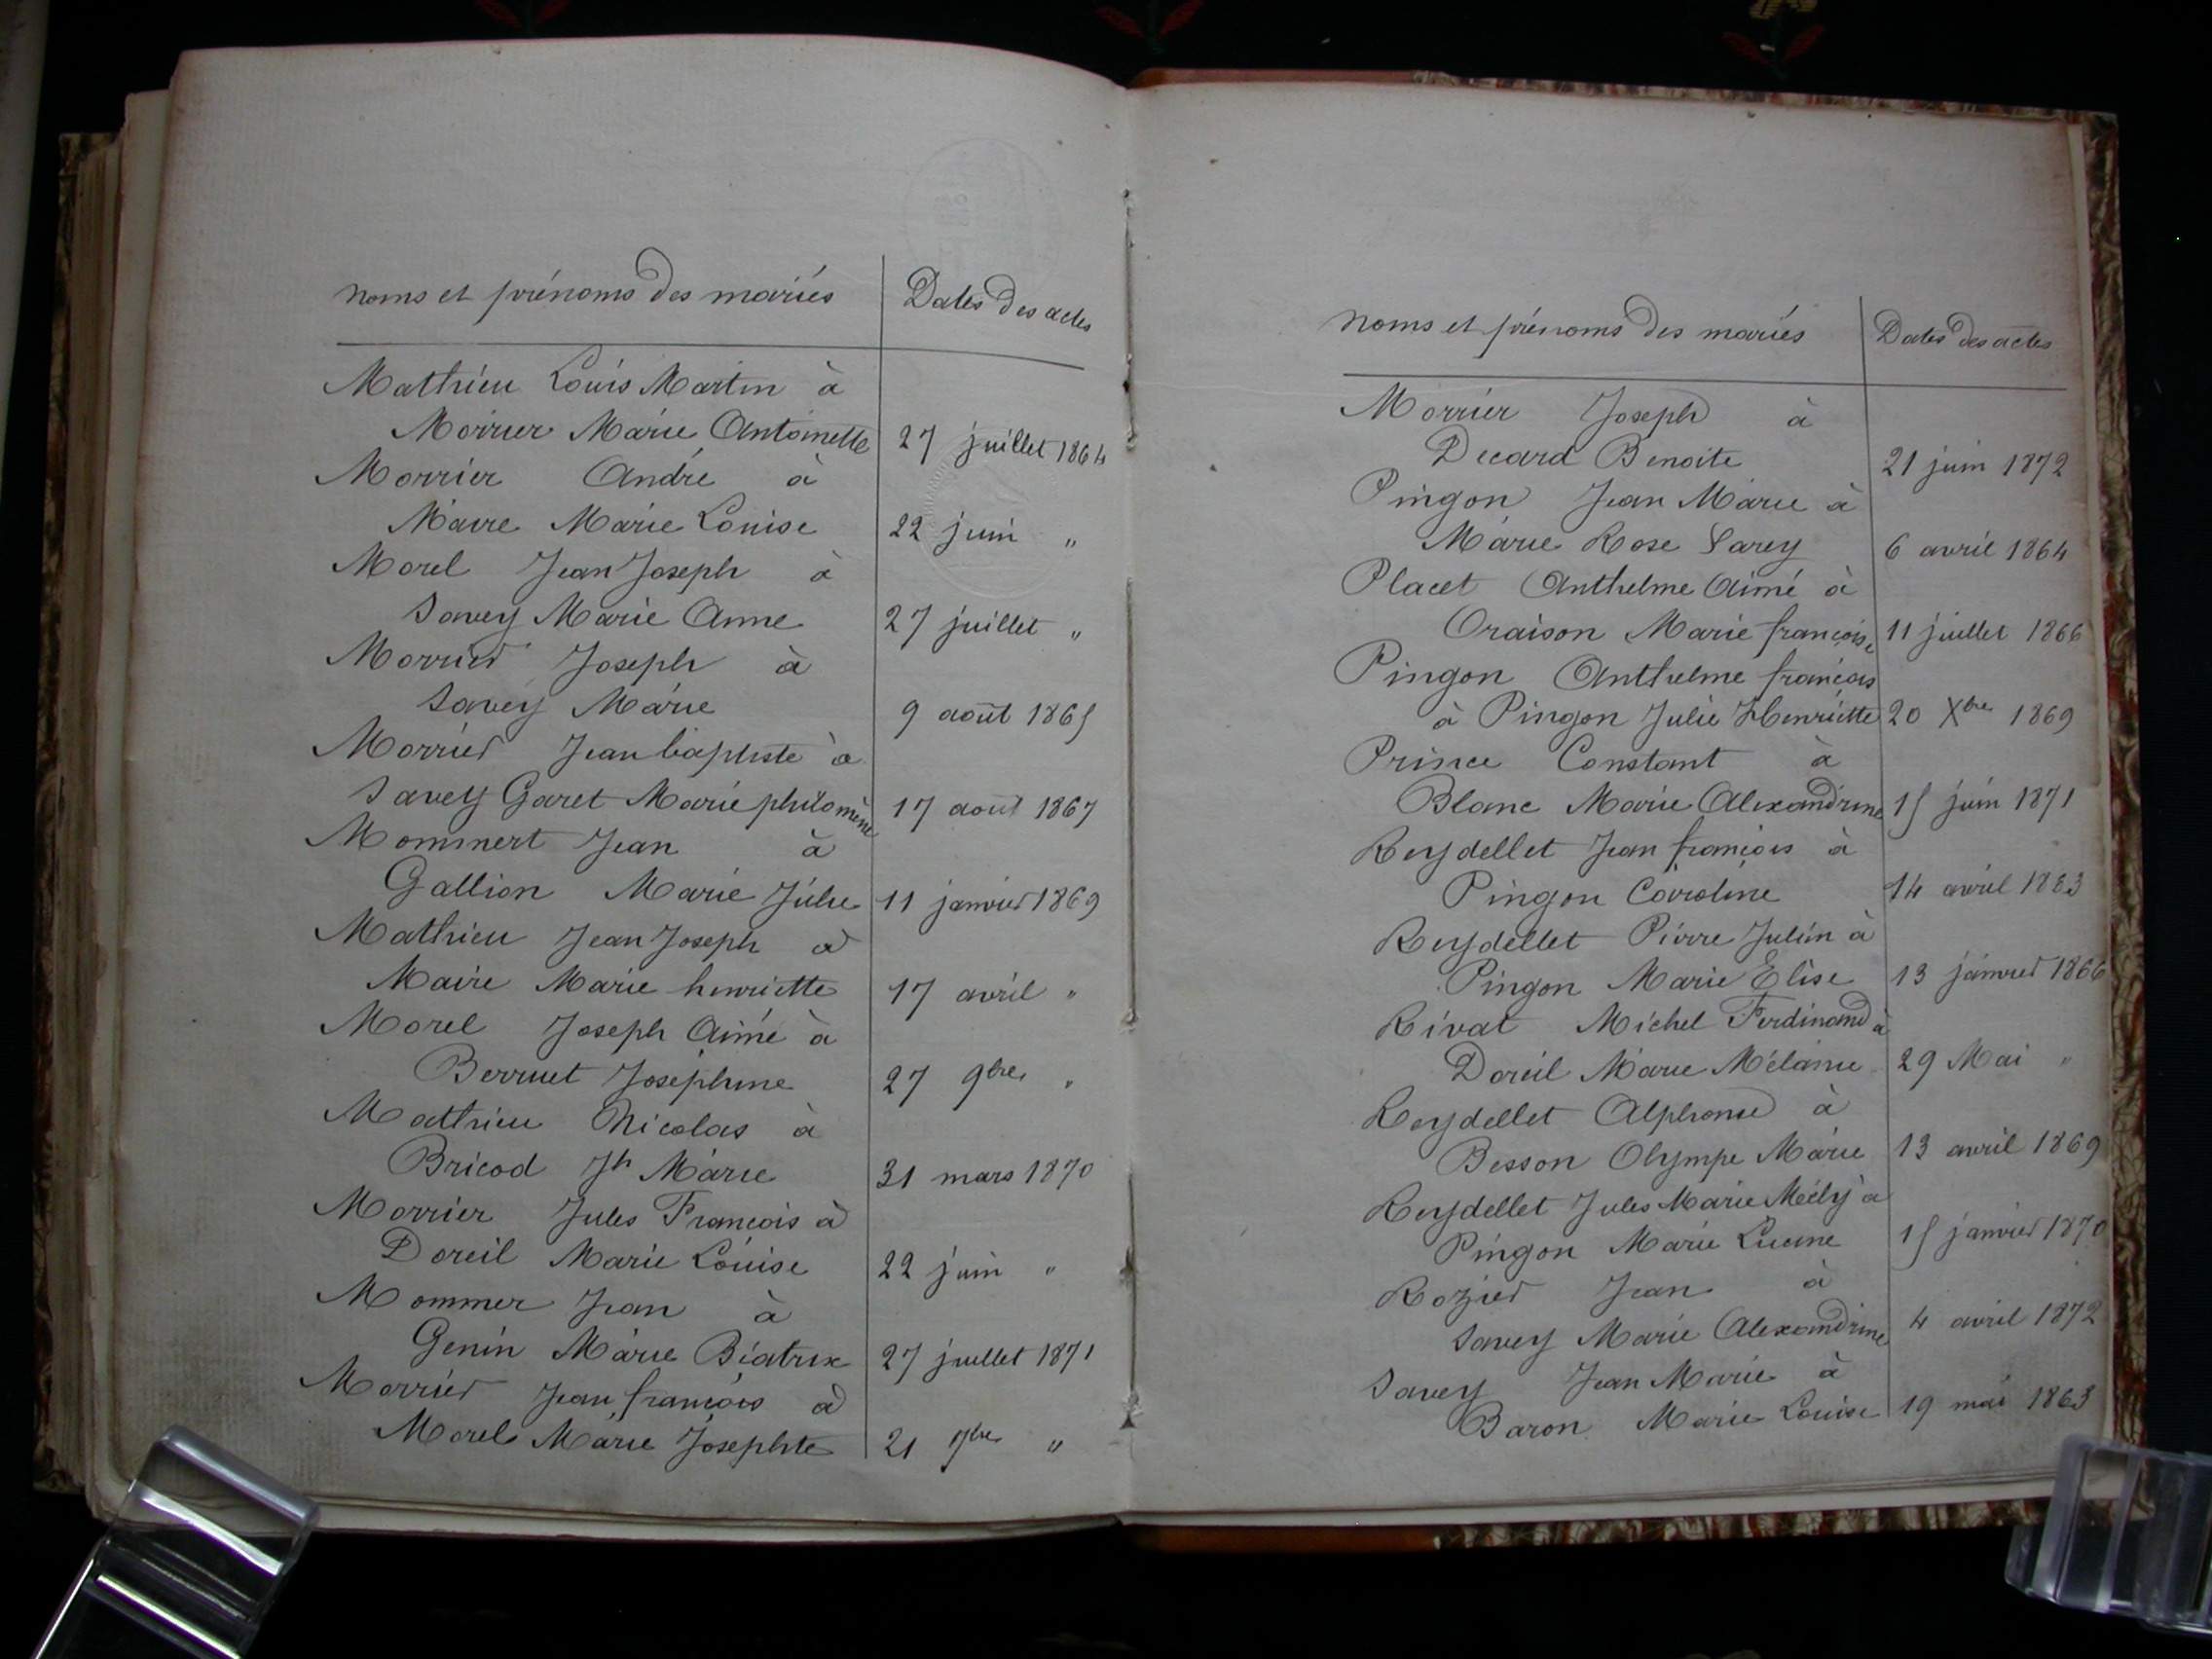 noms et prénoms des mariés Dates des actes
Mathieu Louis Martin à
Morrier Marie Antoinette 27 juillet 1864
Morrier André à
Maire Marie Louise 22 juin "
Morel Jean Joseph à
Savey Marie Anne 27 juillet "
Morrier Joseph à
Savey Marie 9 août 1865
Morrier Jean baptiste à
Savey Garet Marie philomène 17 août 1867
Mommert Jean à
Gallion Marie Julie 11 janvier 1869
Mathieu Jean Joseph à
Maire Marie henriette 17 avril "
Morel Joseph Aimé à
Berruet Joséphine 27 9bre "
Mathieu Nicolas à
Bricod Jh Marie 31 mars 1870
Morrier Jules François à
Doreil Marie Louise 22 juin "
Mommer Jean à
Genin Marie Béatrix 27 juillet 1871
Morrier Jean françois à
Morel Marie Josephte 21 "
noms et prénoms des mariés Dates des actes
Morrier Joseph à
Decard Benoite 21 juin 1872
Pingon Jean Marie à
Marie Rose Savey 6 avril 1864
Placet Anthelme Aimé à
Oraison Marie françoise 11 juillet 1866
Pingon Anthelme françois
à Pingon Julie Henriette 20 Xbre 1869
Prince Constant à
Blanc Marie Alexandrine 15 juin 1871
Reydellet Jean françois à
Pingon Caroline 14 avril 1863
Reydellet Pierre Julien à
Pingon Marie Elise 13 janvier 1866
Rivat Michel Ferdinand à
Doreil Marie Mélanie 29 Mai "
Reydellet Alphonse à
Besson Olympe Marie 13 avril 1869
Reydellet Jules Marie à
Pingon Marie 15 janvier 1870
Rozier Jean à
Savey Marie Alexandrine 4 avril 1872
Savey Jean Marie à
Baron Marie Louise 19 mai 1863